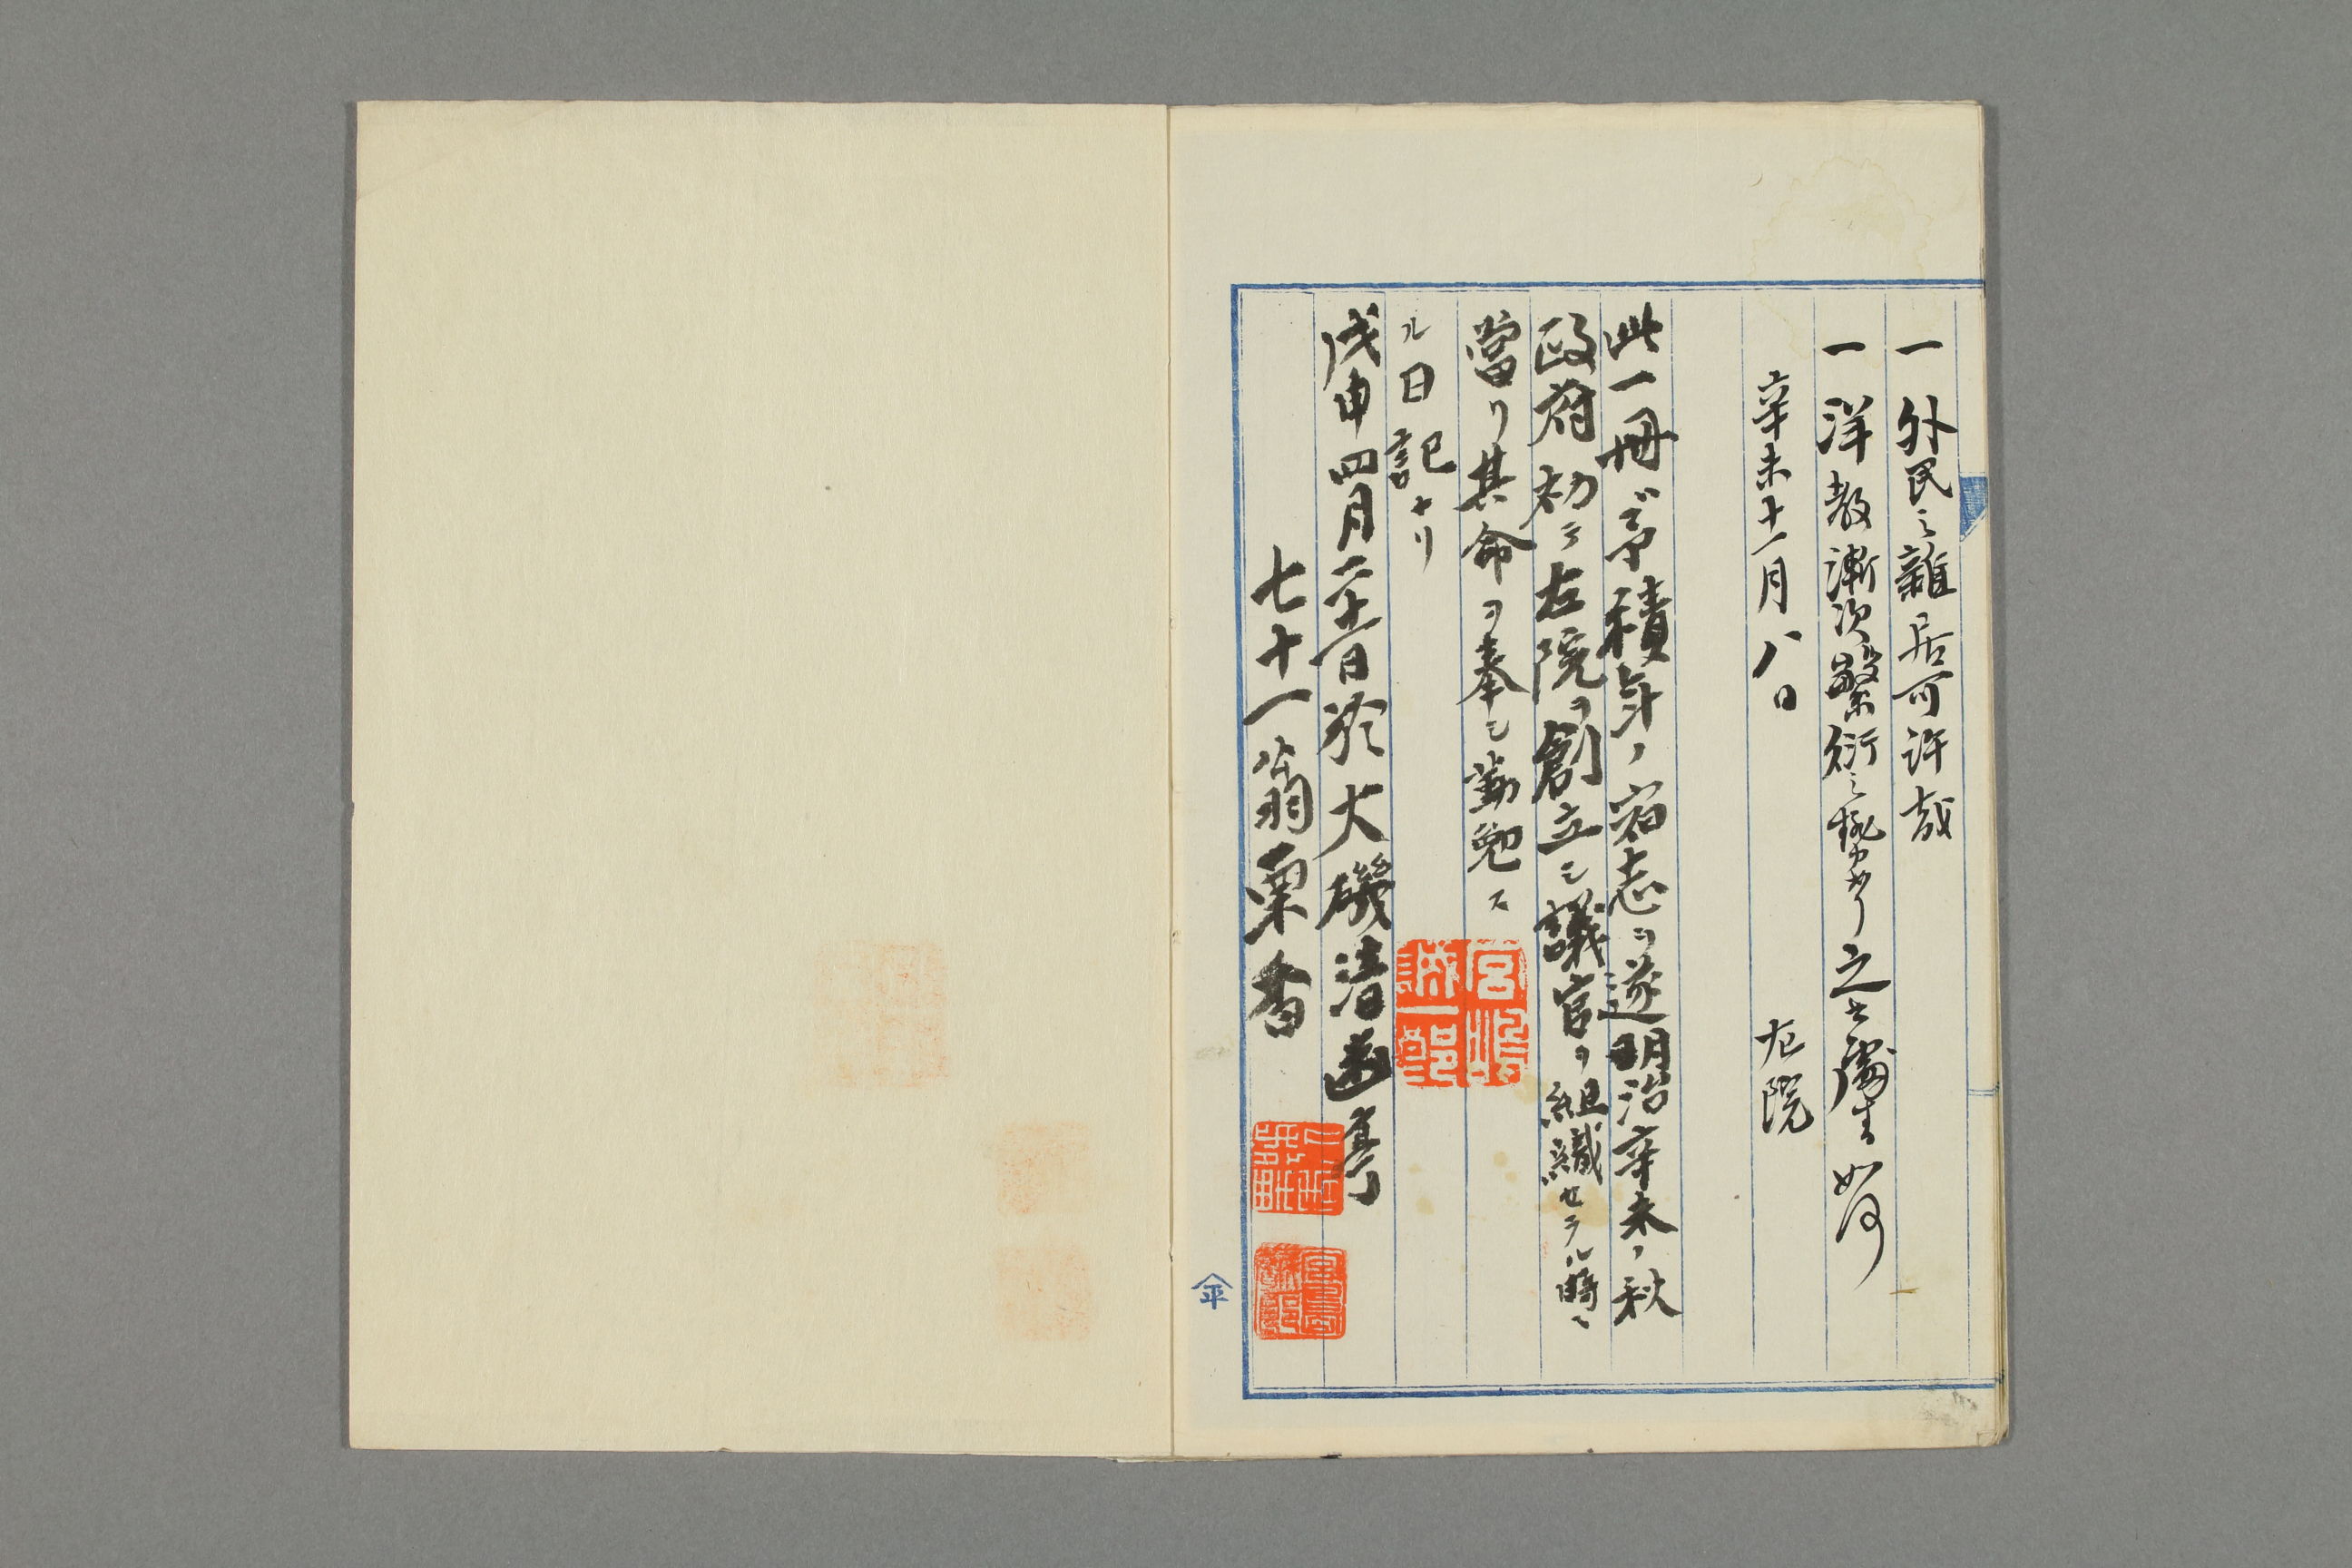 一外民之雑居可許哉
一洋教漸次繁衍之 アリ之ヲ處スル如何
辛未十一月八日　　左院
此一冊ハ予積年ノ宿志ヲ遂明治辛未ノ秋
政府初テ左院ヲ創立シ議官ヲ組織セラルヽ時ニ
當リ其命ヲ奉シ勤勉ス
ル日記ナリ
戊申四月二十一日於大磯清幽亭
七十一翁栗香
宮島誠一郎